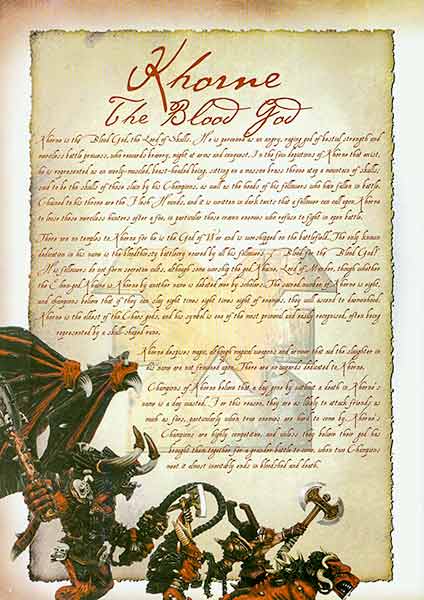 Khorne
The Blood God
Khorne is the Blood God, the Lord of Skulls. He is perceived as an angry, raging god of bestial strength and
merciless battle prowess, who rewards bravery, might at arms and conquest. In the few depictions of Khorne that exist,
he is represented as an overly-muscled, beast-headed being, sitting on a massive brass throne atop a mountain of skulls,
said to be the skulls of those slain by his Champions, as well as the heads of his followers who have fallen in battle.
Chained to his throne are the Flesh Hounds, and it is written in dark texts that a follower can call upon Khorne
to loose these merciless hunters after a foe, in particular those craven enemies who refuse to fight in open battle.
There are no temples to Khorne for he is the God of War and is worshipped on the battlefield. The only known
dedication in his name is the bloodthirsty battlecry roared by all his followers... Blood for the Blood God!
His followers do not form secretive cults, although some worship the god Khaine, Lord of Murder, though whether
the Elven-god Khaine is Khorne by another name is debated even by scholars. The sacred number of Khorne is eight,
and champions believe that if they can slay eight times eight times eight of enemies, they will ascend to daemonhood.
Khorne is the oldest of the Chaos gods, and his symbol is one of the most primal and easily recognised, often times
being represented by a skull-shaped rune.
Khorne despises magic, although magical weapons and armour that aid the slaughter in
his name are not frowned upon. There are no wizards dedicated to Khorne.
Champions of Khorne believe that a day gone by without a death in Khorne's
name is a day wasted. For this reason, they are as likely to attack friends as
much as foes, particularly when true enemies are hard to come by. Khorne's
Champions are highly competitive, and unless they believe their god has
brought them together for a grander battle to come, when two Champions
meet it almost inevitably ends in bloodshed and death.